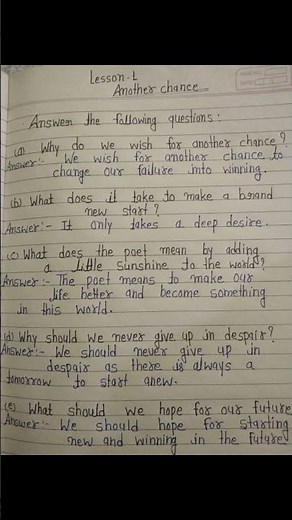 Lesson-1
Another chance
Answer the following questions:
(a) Why do we wish for another chance?
Answer:- We wish for another chance to
change our failure into winning.
(b) What does it take to make a brand
new start?
Answer:- It only takes a deep desire.
(c) What does the poet mean by adding
a little sunshine to the world?
Answer:- The poet means to make our
life better and become something
in this world.
(d) Why should we never give up in despair?
Answer:- We should never give up in
despair as there is always a
tomorrow to start anew.
(e) What should we hope for our future
Answer:- We should hope for starting
new and winning in the future